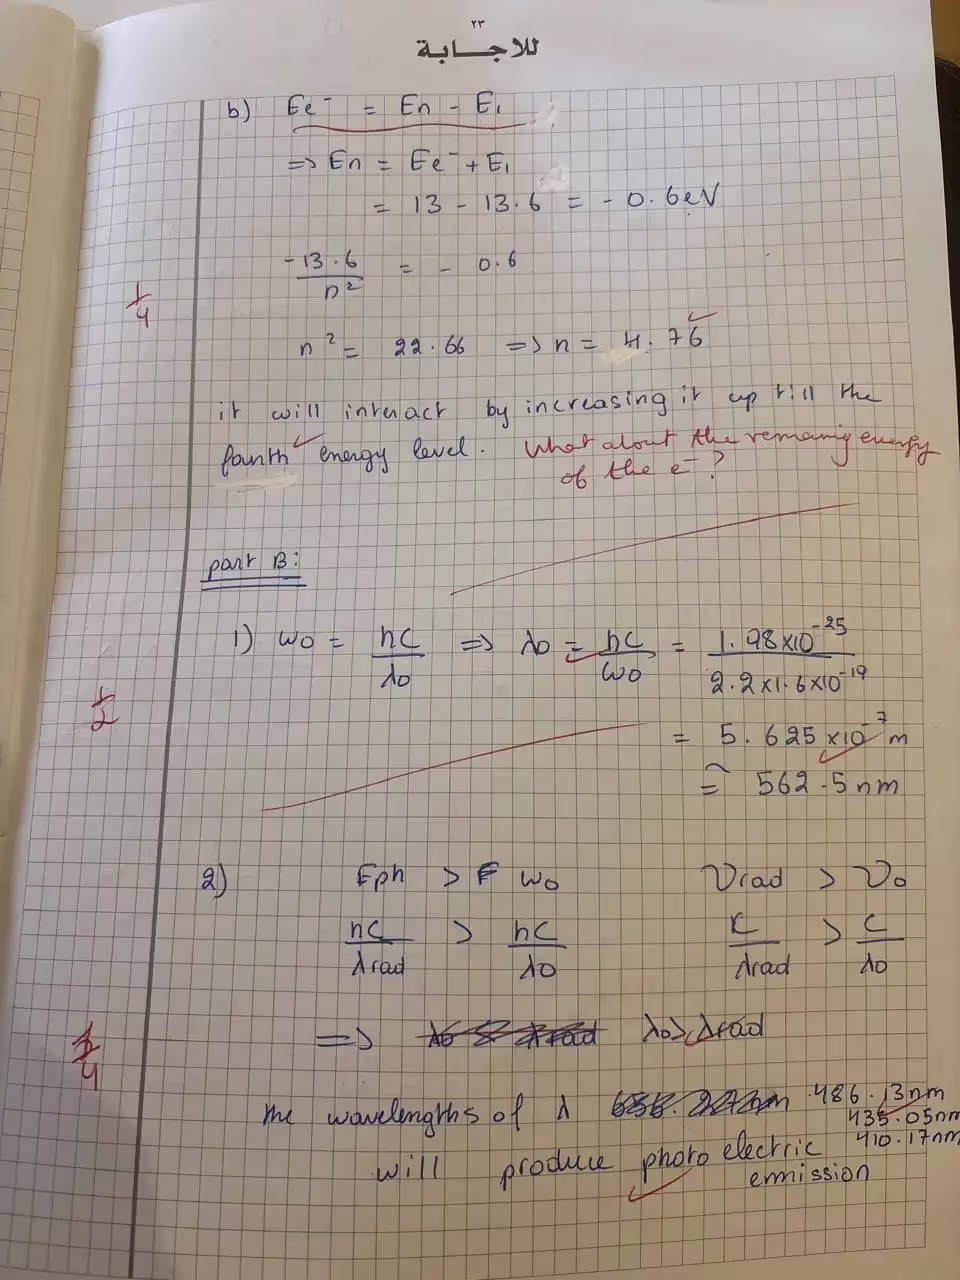 ٢٣
للاجـــابة
b) Ee⁻ = En - E₁
=> En = Ee⁻ + E₁
= 13 - 13.6 = - 0.6eV
-13.6/n² = - 0.6
1/4
n² = 22.66 => n = 4.76
it will interact by increasing it up till the
fourth energy level. What about the remaining energy
of the e⁻?
part B:
1) wo = hc/λo => λo = hc/wo = 1.98x10⁻²⁵/2.2x1.6x10⁻¹⁹
1/2
= 5.625x10⁻⁷m
≅ 562.5nm
2) Eph > wo νrad > νo
hc/λrad > hc/λo c/λrad > c/λo
=> λo>λrad
1/4
the wavelengths of λ 486.13nm
435.05nm
410.17nm
will produce photoelectric
emission